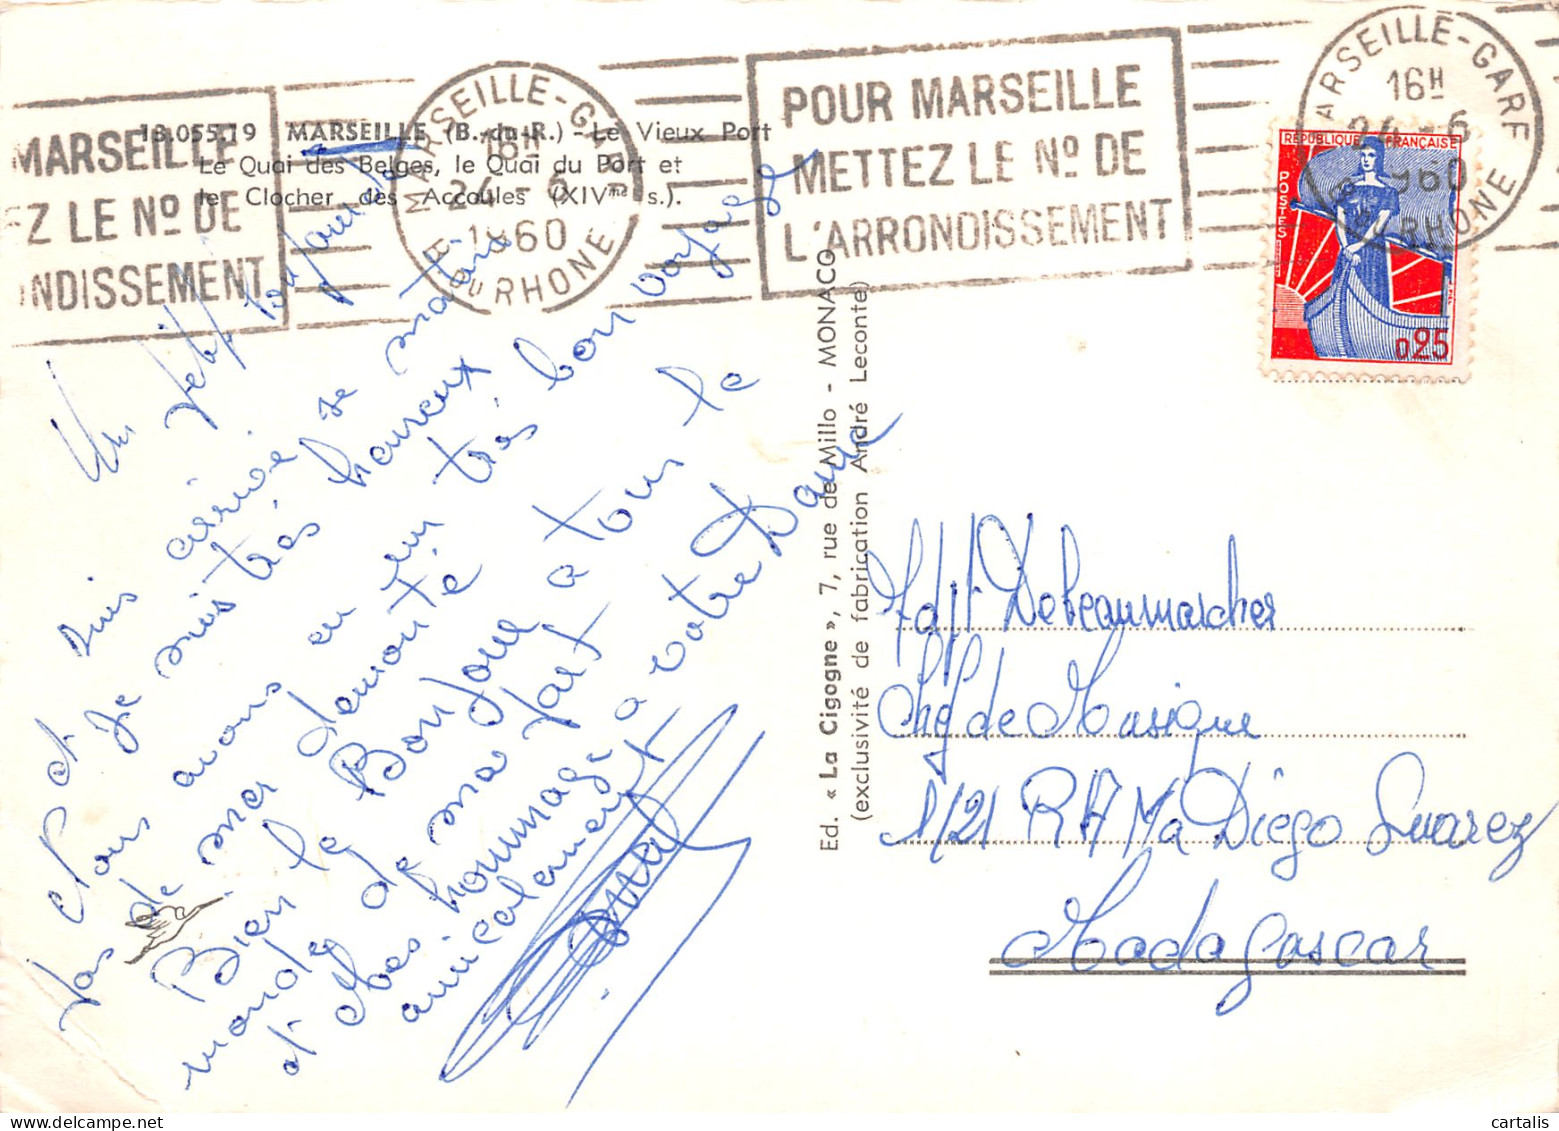 MARSEILLE
EZ LE Nº DE
NDISSEMENT
MARSEILLE-GARE
16H
24-6
1960
B. DU RHONE
POUR MARSEILLE
METTEZ LE Nº DE
L'ARRONDISSEMENT
MARSEILLE-GARE
16H
24-6
1960
RHONE
RÉPUBLIQUE FRANÇAISE
POSTES
0,25
18.055.19 MARSEILLE (B.-du-R.) - Le Vieux Port
Le Quai des Belges, le Quai du Port et
le Clocher des Accoules (XIVme s.).
Un petit bonjour je
suis arrivé se matin
et je suis très heureux
Nous avons eu un très bon voyage
pas de mer démonté
Bien le Bonjour a tous le
monde de ma part
et mes hommage a votre Dame
amicalement
Ed. « La Cigogne », 7, rue de Millo - MONACO
(exclusivité de fabrication André Leconte)
Adjt Debeaumarcher
Chef de Musique
1/21 R A Ma Diégo Suarez
Madagascar
cartalis